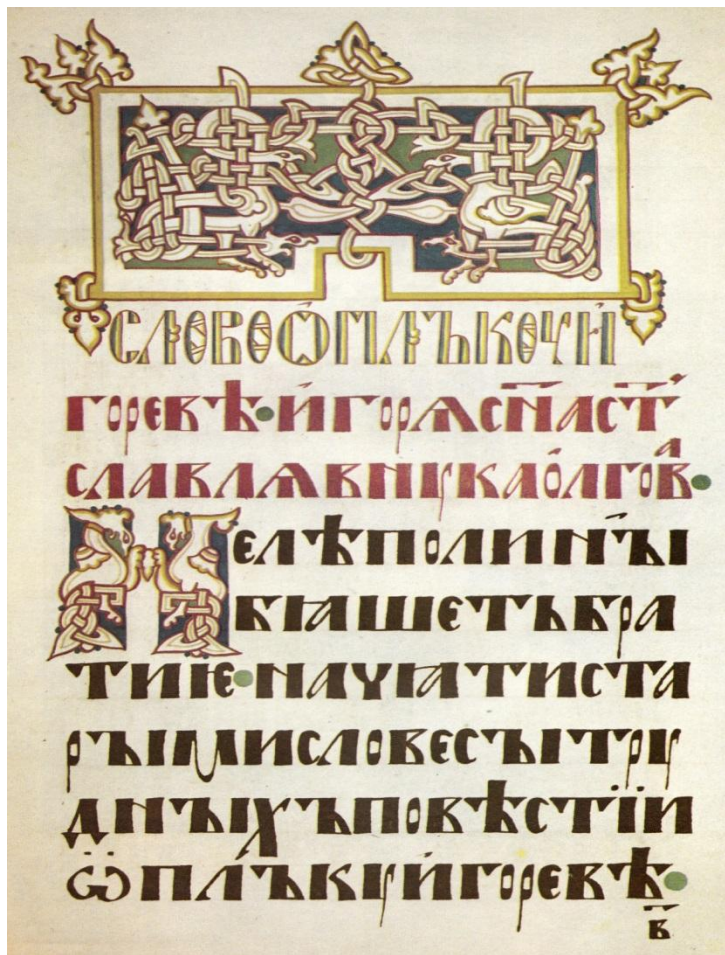 СЛОВОѠПЛЪКОУИ
ГОРЕВѢ·ИГОРѦСН҃АСТ҃
СЛАВЛѦВНꙊКАОЛГОВⷶ·
НЕЛѢПОЛИНЪІ
БꙖШЕТЪБРА
ТИѤ·НАЧꙖТИСТА
РЪІМИСЛОВЕСЪІТРꙊ
ДНЪІХЪПОВѢСТЇИ
ѠПЛЪКꙊИГОРЕВѢ·
В҃